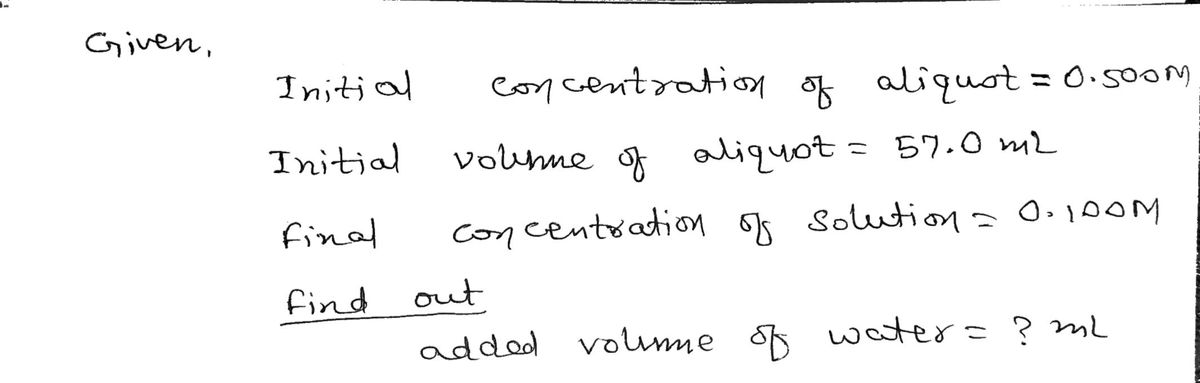 Given,
Initial concentration of aliquot = 0.500M
Initial volume of aliquot = 57.0 mL
final concentration of solution = 0.100M
find out
added volume of water = ? mL